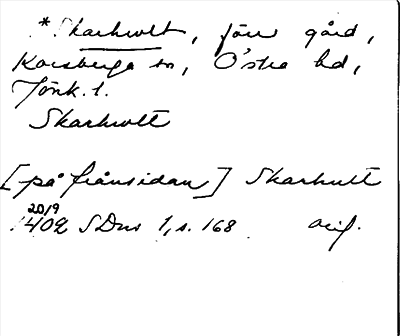 *Skarhult, förr gård,
Korsberga sn, Östra hd,
Jönk. l.
Skarhult
[på frånsidan] Skarhult
20/9
1402 SDns 1, s. 168 orig.